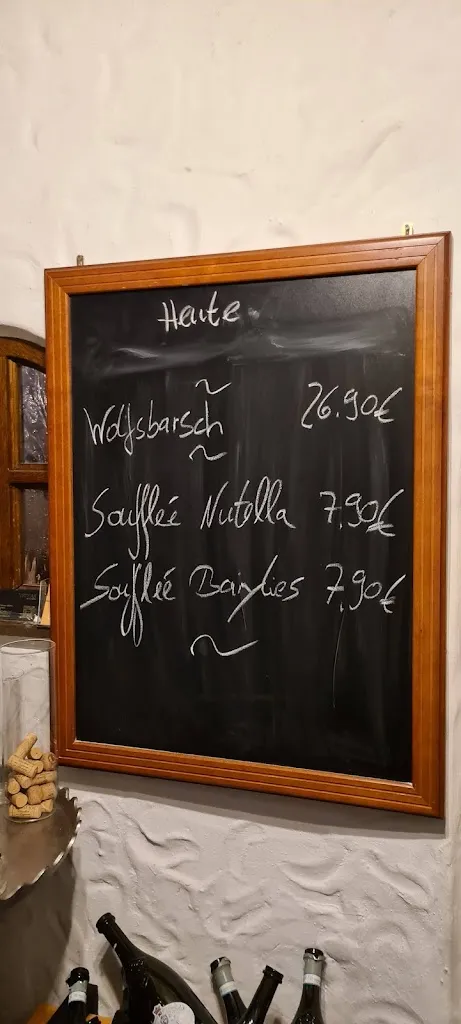 Heute
~
Wolfsbarsch 26.90€
~
Soufflée Nutella 7.90€
Soufflée Bairlies 7.90€
~